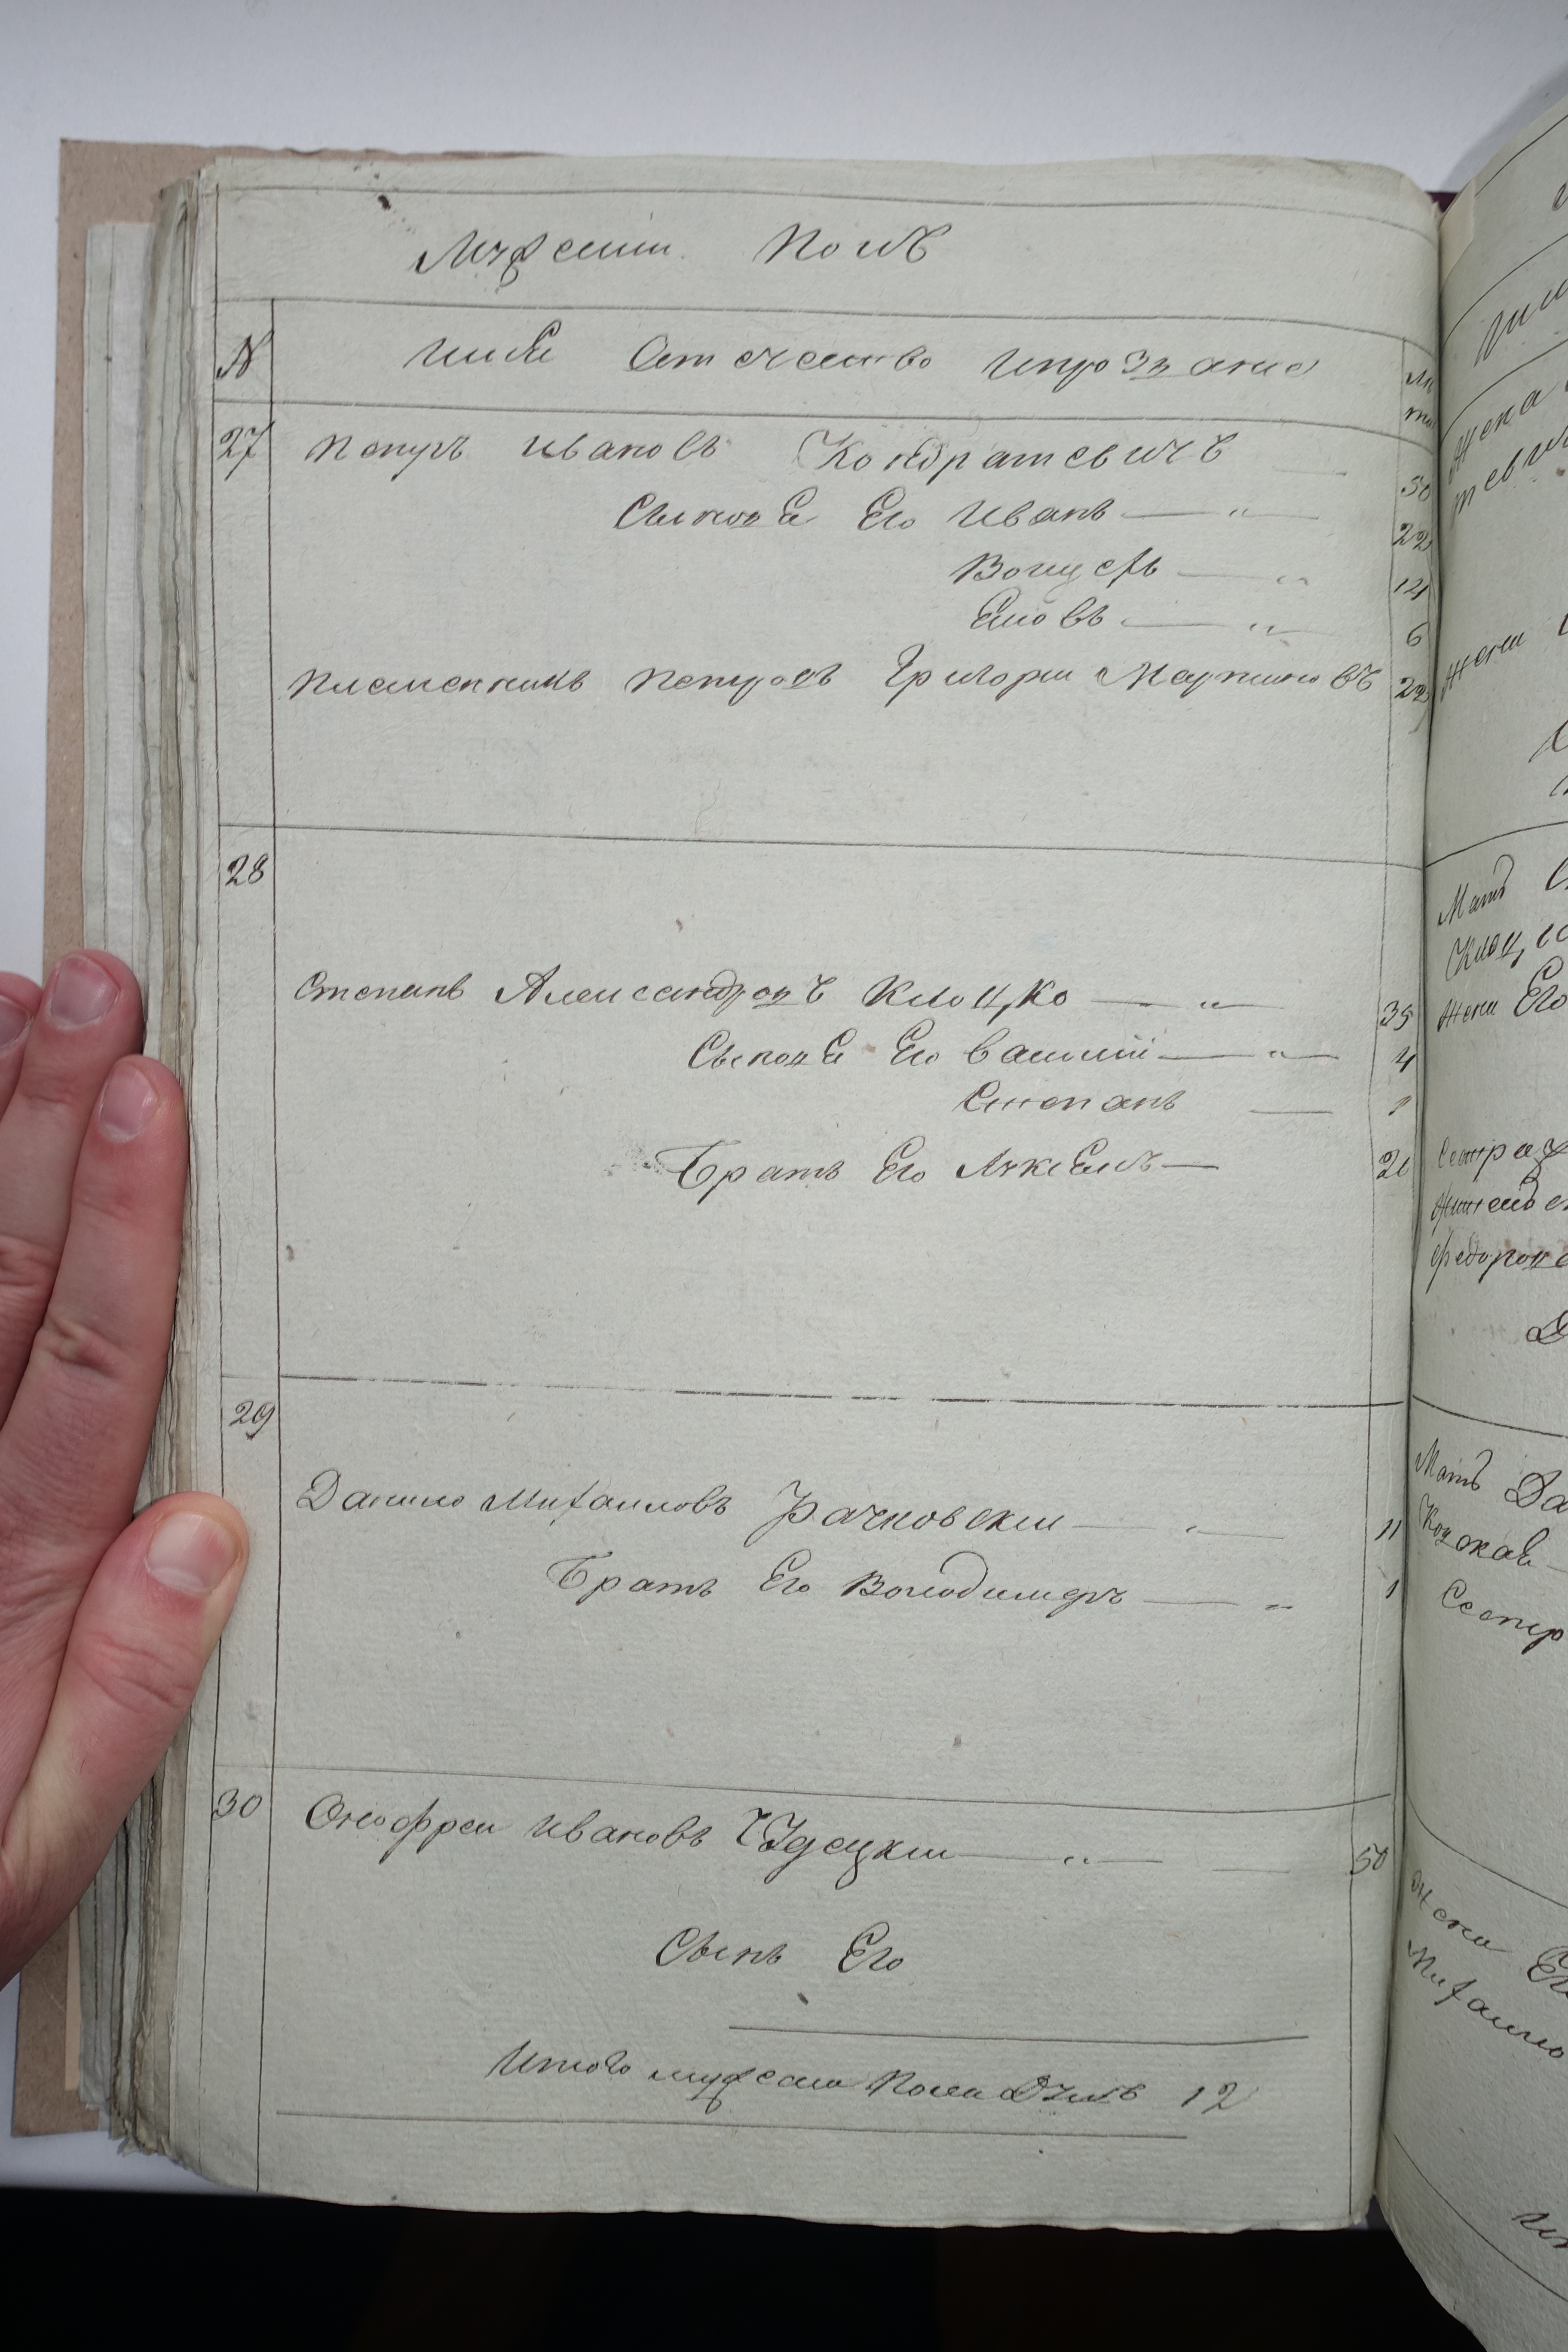 Мужескии Полъ
N Имя Отечество Ипрозвание
27 Петръ Ивановъ Кондратевичъ 50
Сыновя Его Иванъ — „ 22
Войцехъ — „ 14
Яковъ — „ 6
Племенникъ Петровъ Григории Мартиновъ 22
28
Степанъ Александровъ Клоцко — „ 35
Сыновя Его Василий — „ 4
Степанъ — 1
Братъ Его 21
29
Данило Михаиловъ Рачковскии — „ 11
Братъ Его Володимеръ — „ 1
30 Онофреи Ивановъ — „ — 50
Сынъ Его
Итого мужеска Пола Душъ 12
Матъ
жена Его
Сестра
Матъ
Сестр
жена Его
Михаило